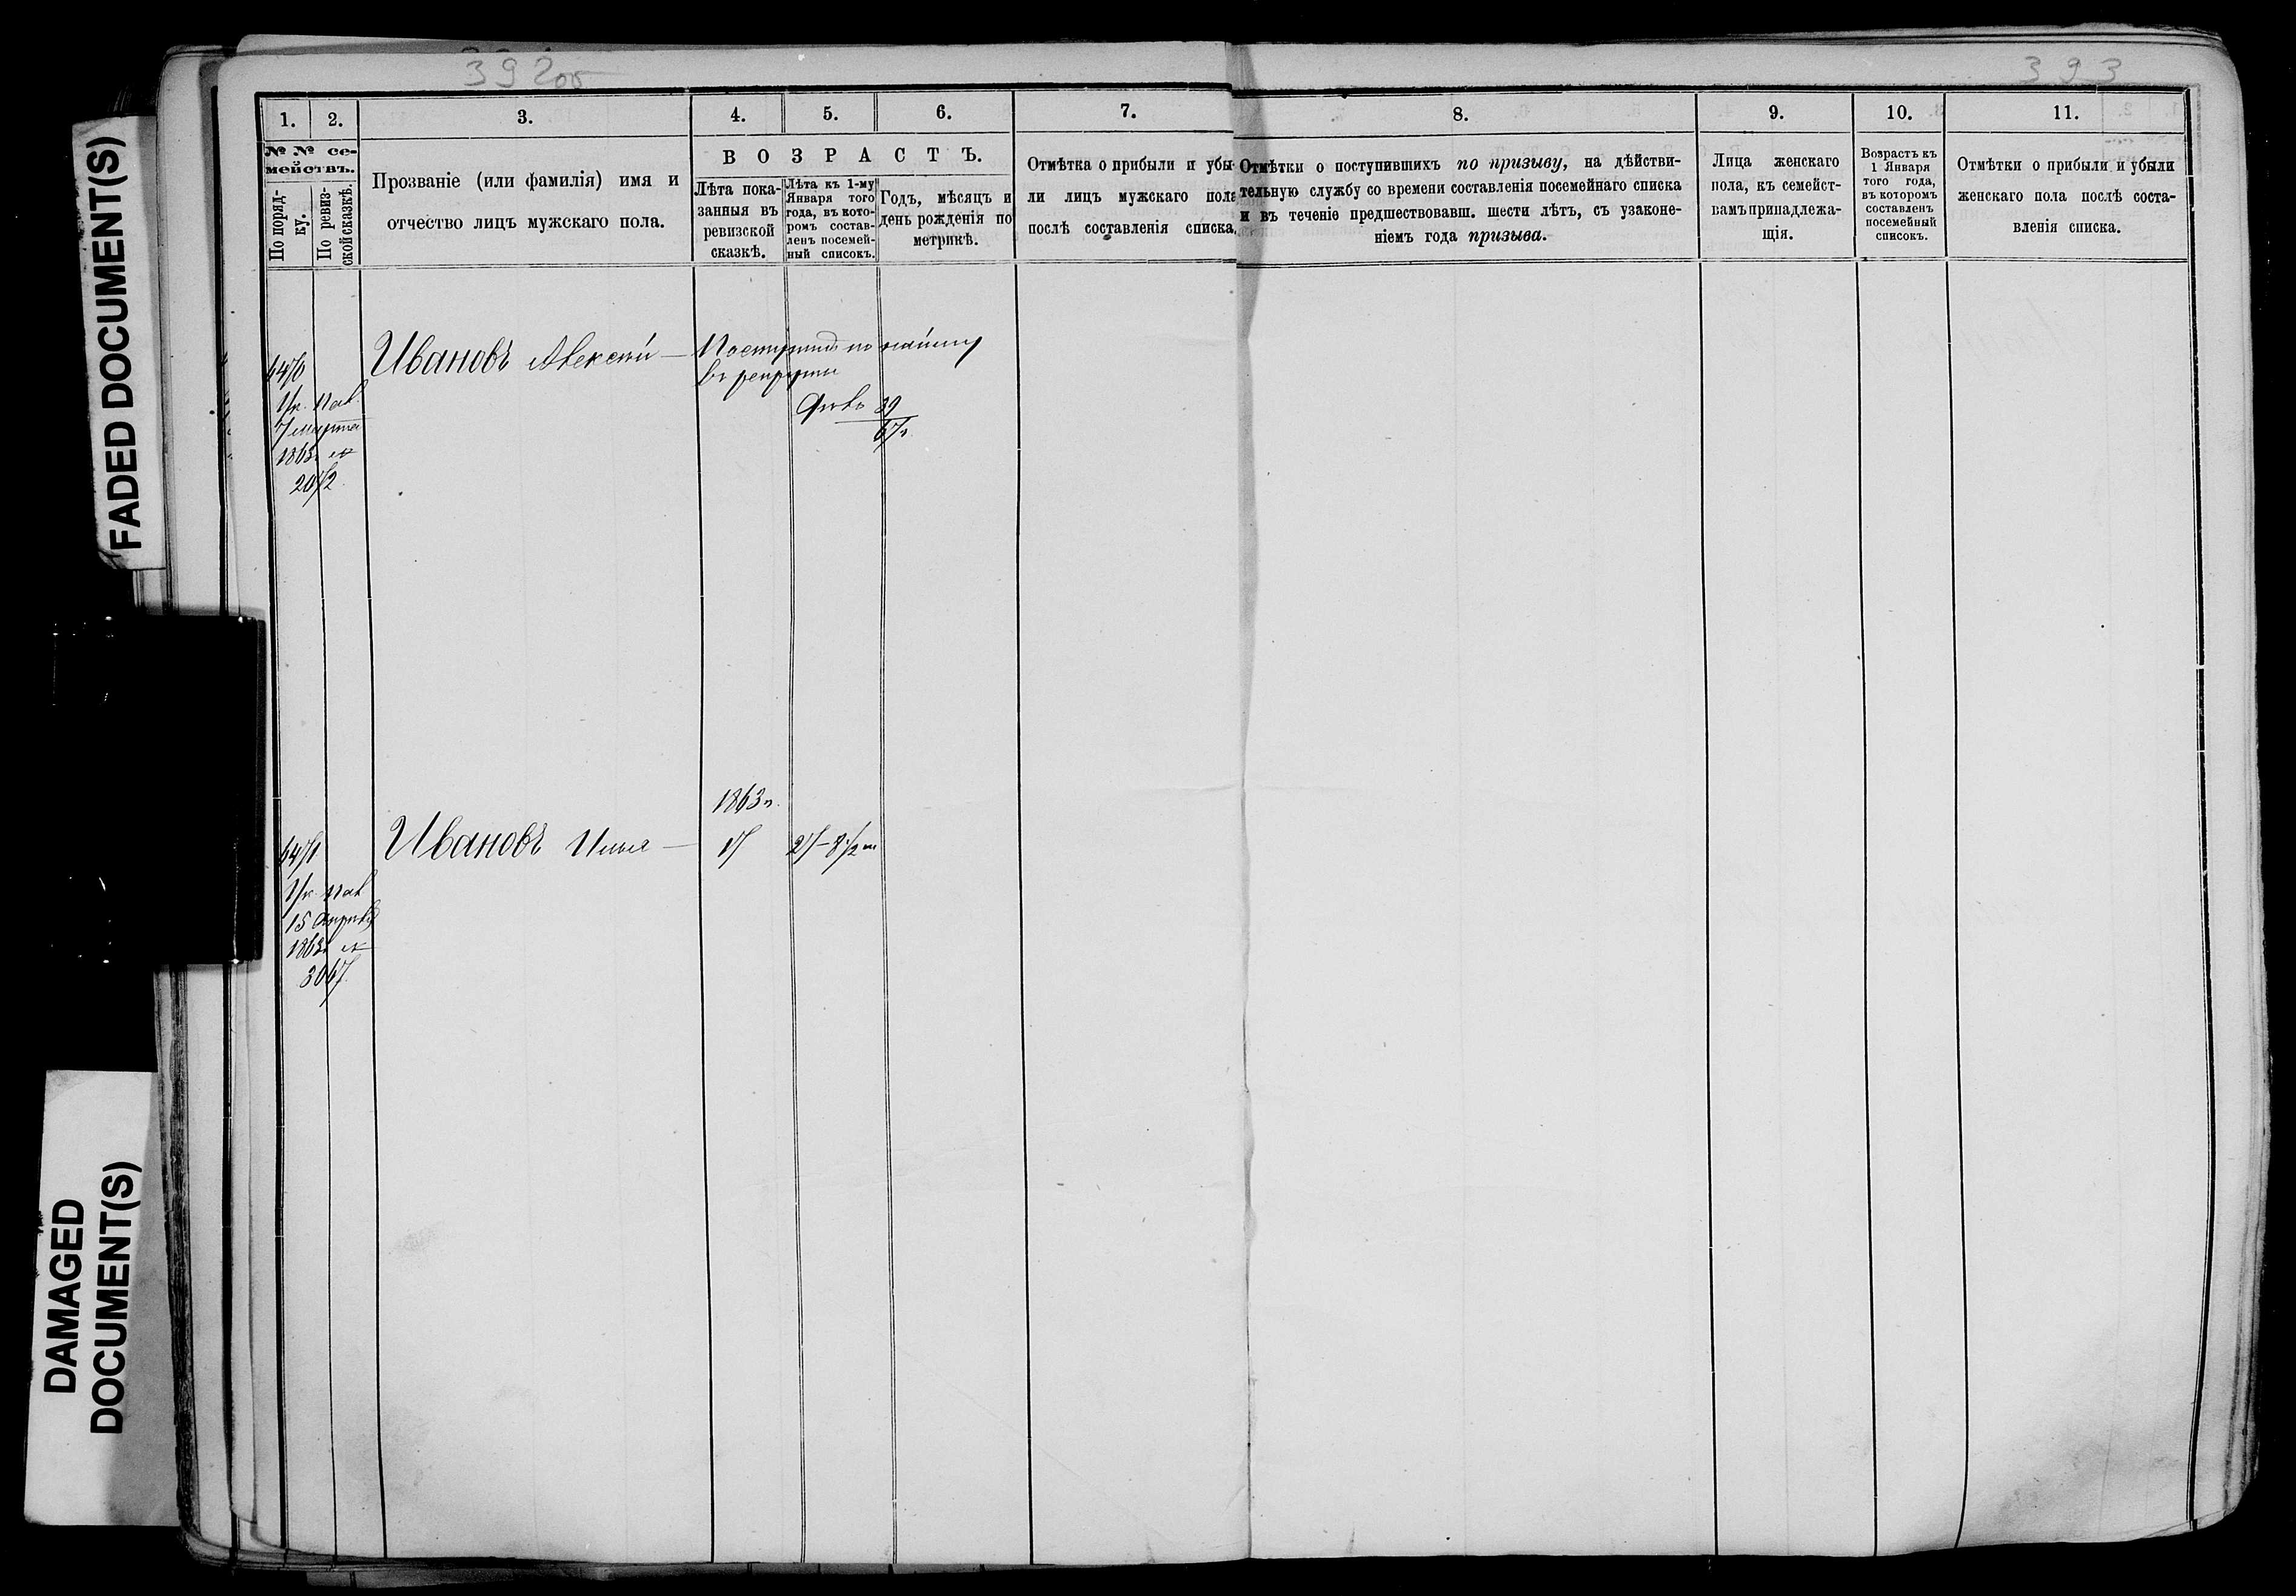 392об
393
FADED DOCUMENT(S)
DAMAGED
DOCUMENT(S)
1.
2.
3.
4.
5.
6.
7.
8.
9.
10.
11.
№ № се-
мействъ.
По поряд-
ку.
По ревиз-
ской сказкѣ.
Прозваніе (или фамилія) имя и
отчество лицъ мужскаго пола.
ВОЗРАСТЪ.
Лѣта пока-
занныя въ
ревизской
сказкѣ.
Лѣта къ 1-му
Января того
года, въ кото-
ромъ состав-
ленъ посемей-
ный списокъ.
Годъ, мѣсяцъ и
день рожденія по
метрикѣ.
Отмѣтка о прибыли и убы-
ли лицъ мужскаго пола
послѣ составленія списка.
Отмѣтки о поступившихъ по призыву, на дѣйстви-
тельную службу со времени составленія посемейнаго списка
и въ теченіе предшествовавш. шести лѣтъ, съ узаконе-
ніемъ года призыва.
Лица женскаго
пола, къ семейст-
вамъ принадлежа-
щія.
Возрастъ къ
1 Января
того года,
въ которомъ
составленъ
посемейный
списокъ.
Отмѣтки о прибыли и убыли
женскаго пола послѣ соста-
вленія списка.
Ивановъ Алексѣй
Поступилъ по найму
въ рекруты
39
67г.
7 марта
1863г. №
2072.
1863г.
Ивановъ Илья
17
27-8½ м
15 Апрѣля
1863г. №
3067.